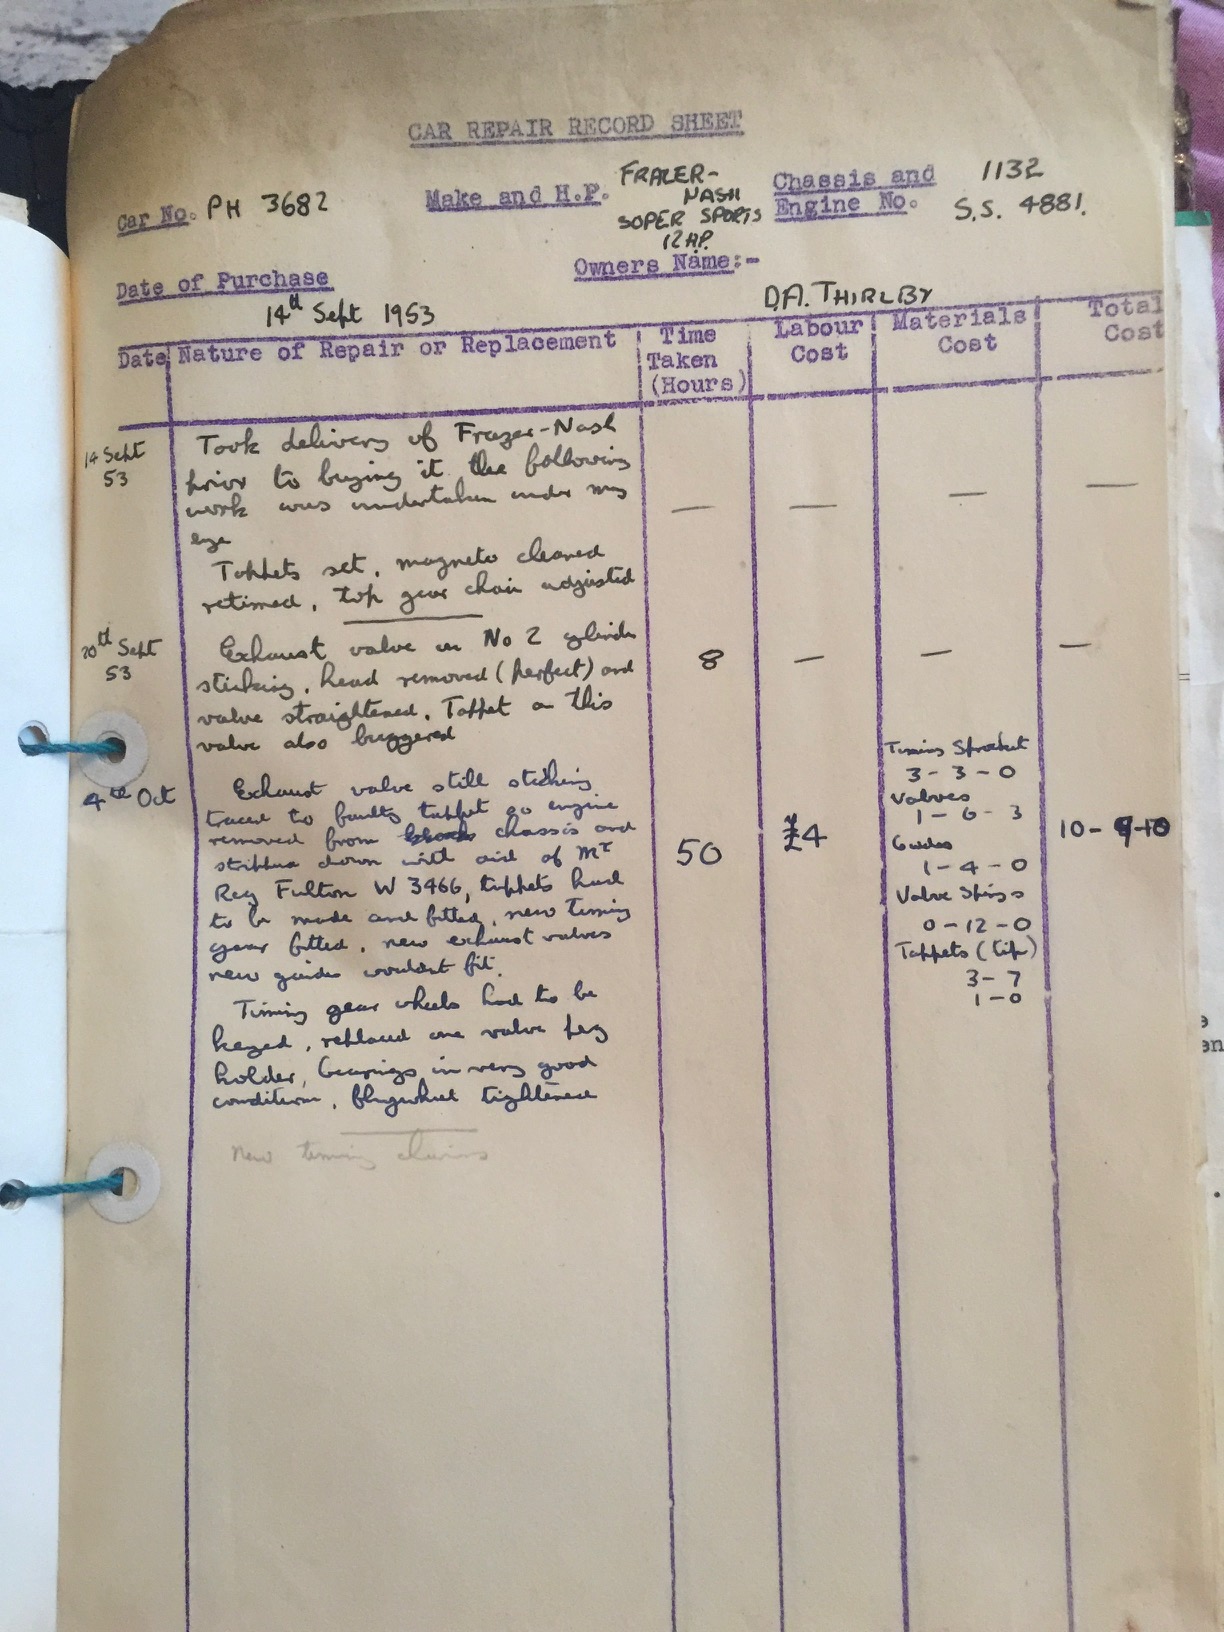 CAR REPAIR RECORD SHEET
Car No. PH 3682
Make and H.P. FRAZER-
NASH
SUPER SPORTS
12 HP.
Chassis and 1132
Engine No. S.S. 4881.
Date of Purchase
14th Sept 1953
Owners Name:-
D.A. THIRLBY
Date
Nature of Repair or Replacement
Time
Taken
(Hours)
Labour
Cost
Materials
Cost
Total
Cost
14 Sept
53
Took delivery of Frazer-Nash
prior to buying it the following
work was undertaken under my
eye
— — — —
Tappets set, magneto cleaned
retimed, top gear chain adjusted
20th Sept
53
Exhaust valve on No 2 cylinder
sticking, head removed (perfect) and
valve straightened. Tappet on this
valve also buggered
8 — — —
4th Oct
Exhaust valve still sticking
traced to faulty tappet so engine
removed from chassis and
stripped down with aid of Mr
Reg Fulton W 3466, tappets had
to be made and fitted, new timing
gear fitted, new exhaust valves
new guides wouldnt fit.
Timing gear wheels had to be
keyed, replaced one valve peg
holder, bearings in very good
condition, flywheel tightened
50
£4
Timing Sprocket
3-3-0
Valves
1-6-3
Guides
1-4-0
Valve Springs
0-12-0
Tappets (tip)
3-7
1-0
10-9-10
New timing chains
en